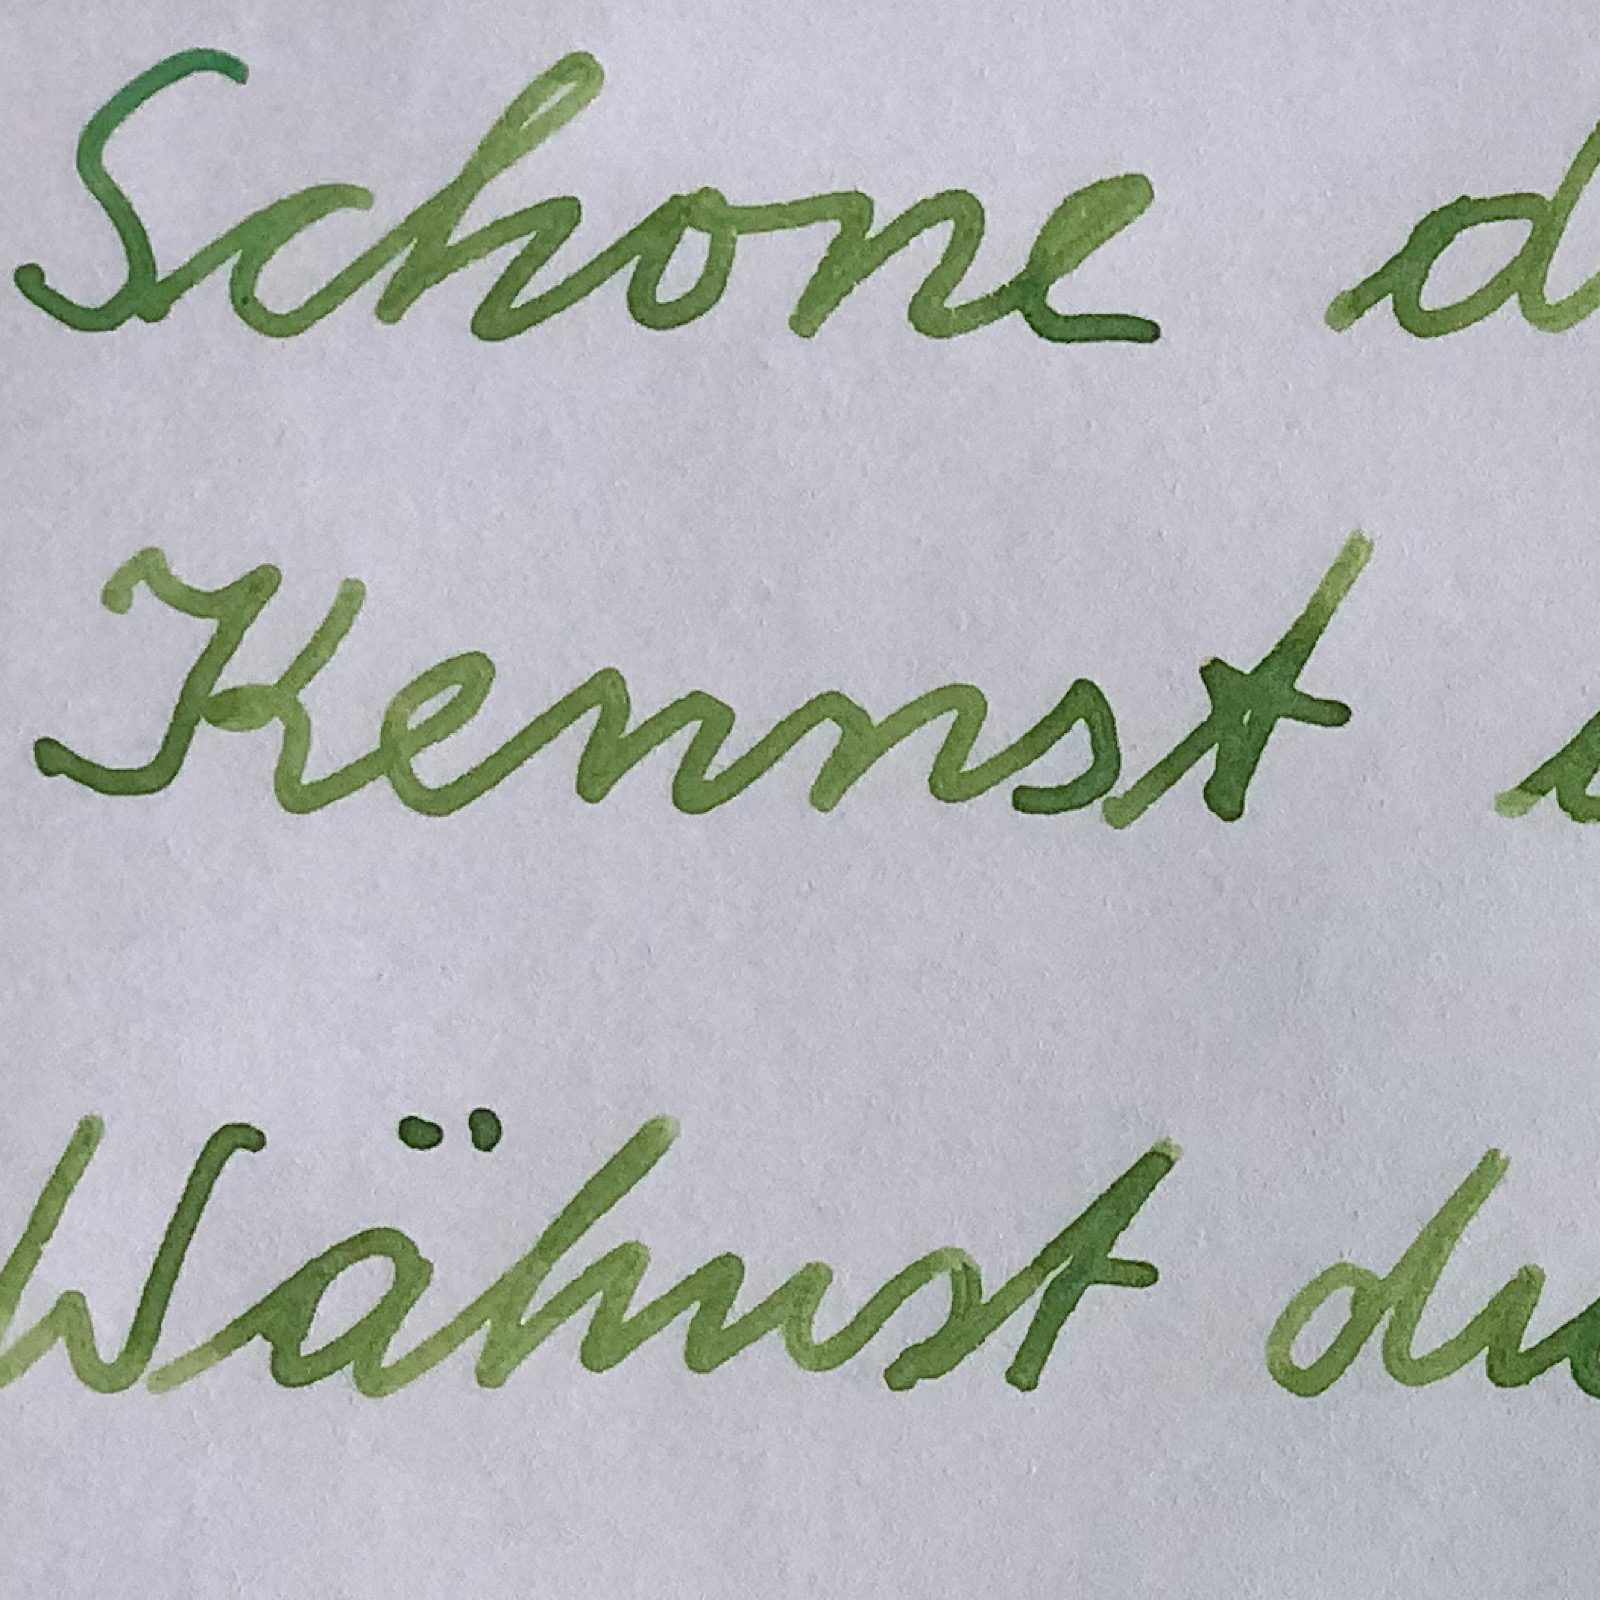 Schone d
Kennst
Wähnst du